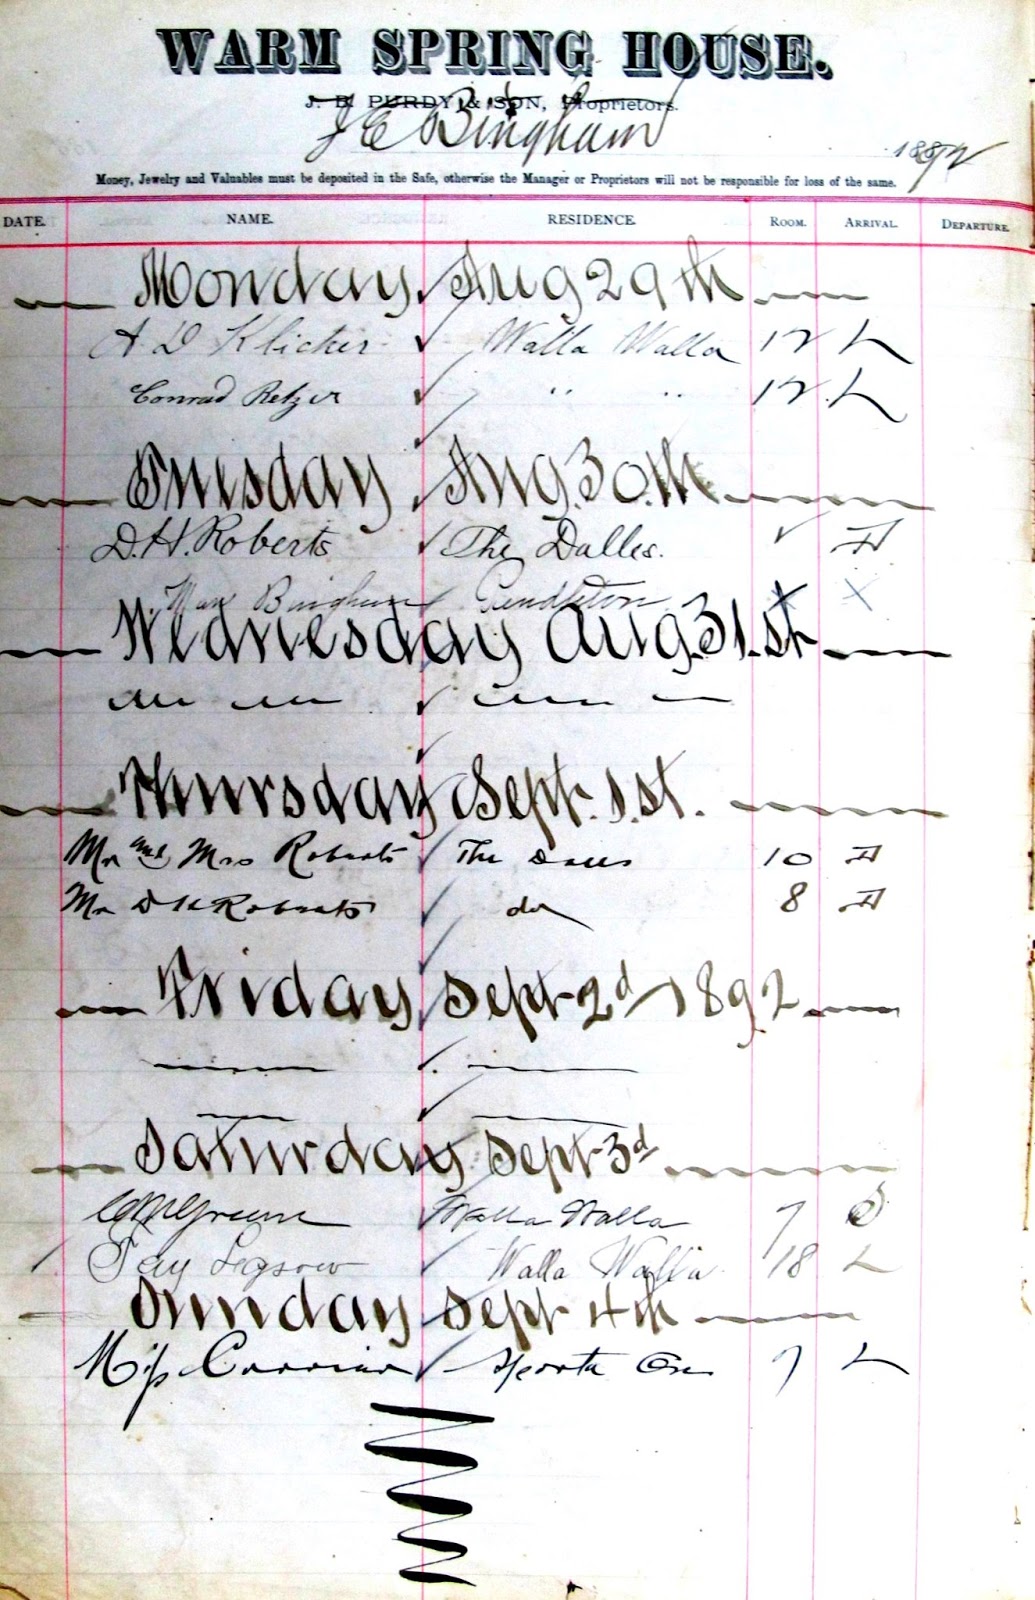 WARM SPRING HOUSE.
J. B. PURDY & SON, Proprietors.
J E Bingham
1892
Money, Jewelry and Valuables must be deposited in the Safe, otherwise the Manager or Proprietors will not be responsible for loss of the same.
DATE. NAME. RESIDENCE. ROOM. ARRIVAL. DEPARTURE.
Monday Aug 29th
A. D Klicker Walla Walla 12 L
Conrad Retzer " " 12 L
Tuesday Aug. 30.th
D. H. Roberts The Dalles.
Bingham Pendleton X X
Wednesday Aug. 31.st
Thursday Sept. 1.st.
Mr and Mrs Roberts The Dalles 10
Mr D H Roberts do 8
Friday Sept 2d 1892
Saturday Sept 3d
Green Walla Walla 7
Walla Walla 18 L
Sunday Sept 4th
Miss 7 L